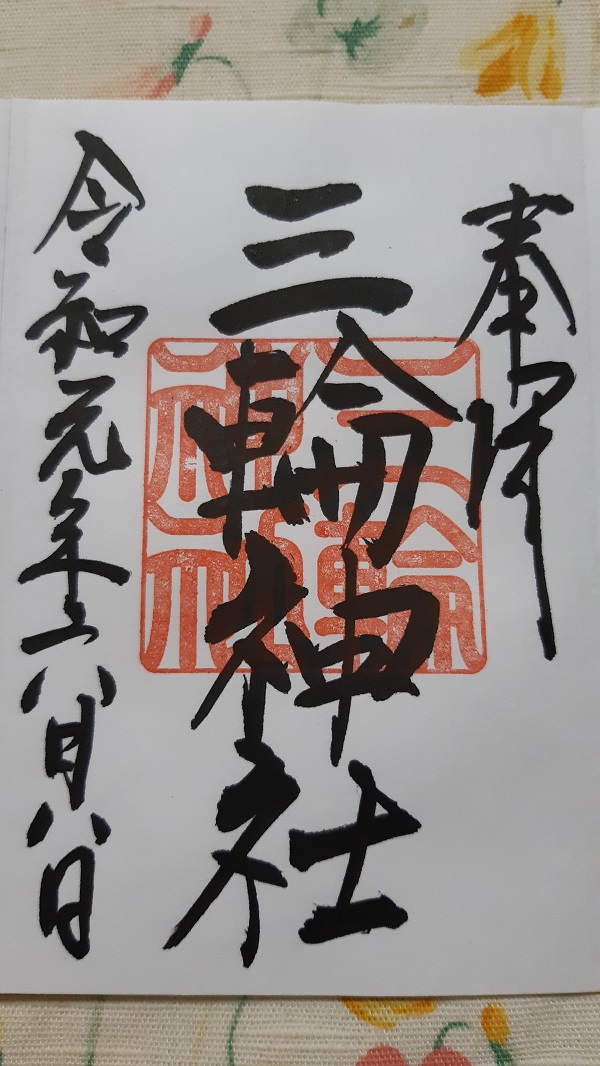 奉拝
三輪神社
三輪神社
令和元年六月八日